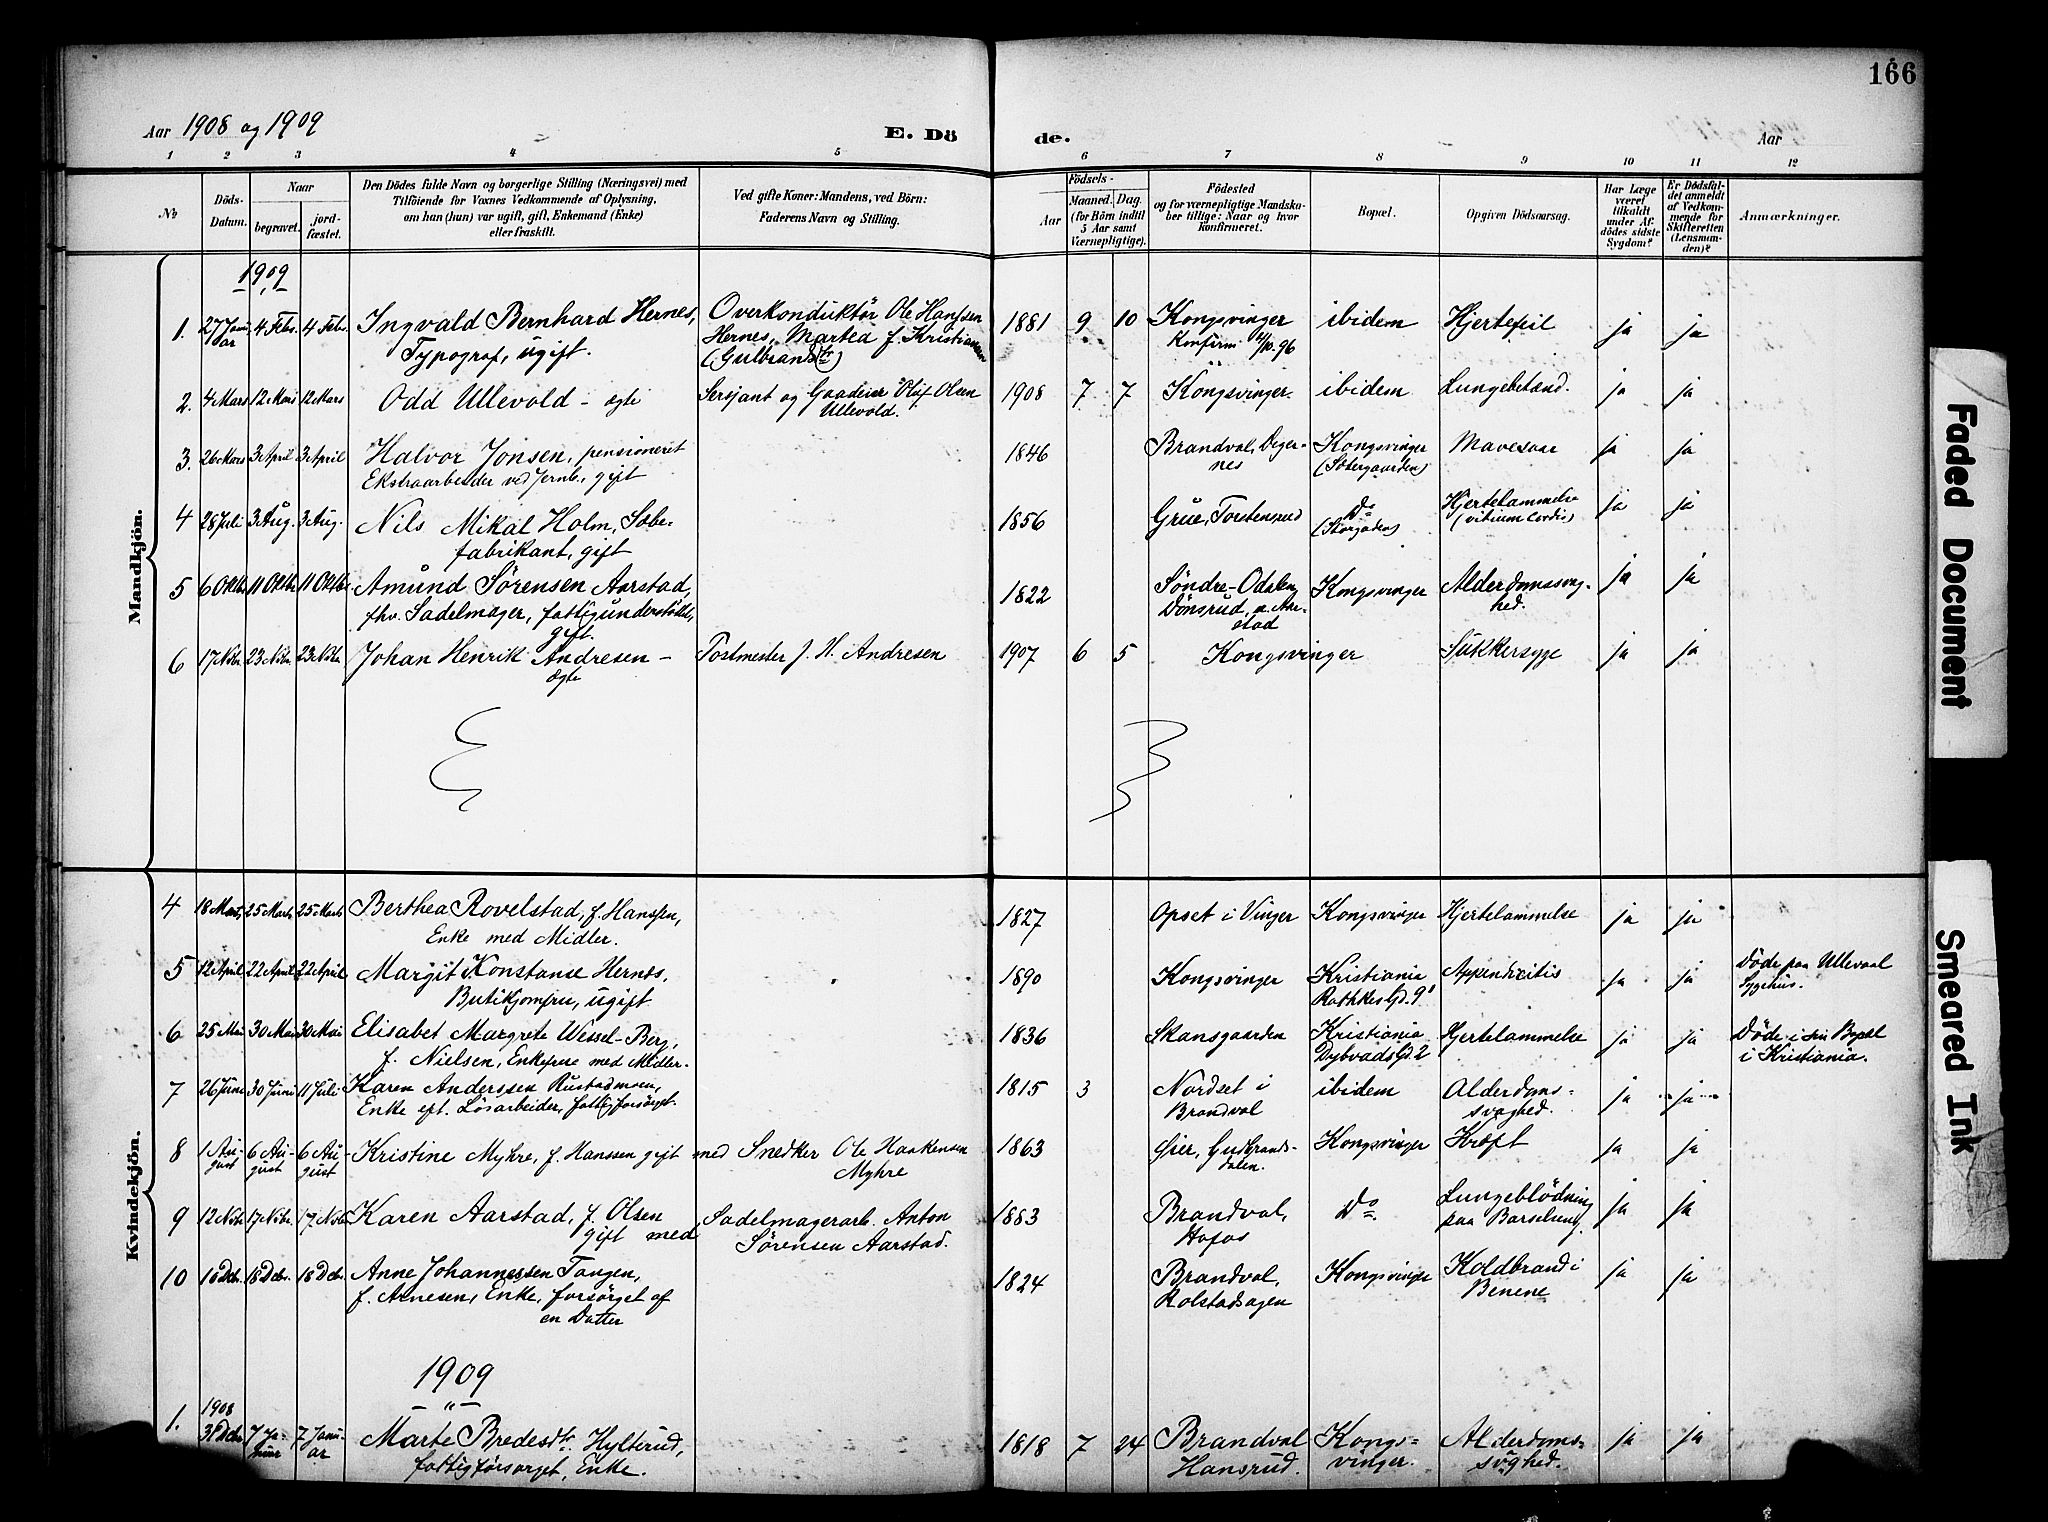 166
Aar 1908 og 1909
E. Dö
de.
Aar
1 2 3 4 5 6 7 8 9 10 11 12
No
Döds-
Datum.
Naar
begravet.
jord-
fæstet.
Den Dödes fulde Navn og borgerlige Stilling (Næringsvei) med
Tilföiende for Voxnes Vedkommende af Oplysning,
om han (hun) var ugift, gift, Enkemand (Enke)
eller fraskilt.
Ved gifte Koner: Mandens, ved Börn:
Faderens Navn og Stilling.
Födsels-
Aar
Maaned.
Dag.
(for Börn indtil
5 Aar samt
Værnepligtige).
Födested
og for værnepligtige Mandska-
ber tillige: Naar og hvor
konfirmeret.
Bopæl.
Opgiven Dödsaarsag.
Har Læge
været
tilkaldt
under Af-
dödes sidste
Sygdom?
Er Dödsfal-
det anmeldt
af Vedkom-
mende for
Skifteretten
(Lensman-
den)?
Anmærkninger.
Mandkjön.
1909
1. 27 Janu-ar 4 Febr. 4 Febr. Ingvald Bernhard Hernes, Overkonduktör Ole Hanssen 1881 9 10 Kongsvinger ibidem Hjertefeil ja ja
Typograf, ugift. Hernes, Martea f. Kristiansen Konfirm. 96
(Gulbrandsdtr)
2. 4 Mars 12 Mars 12 Mars Odd Ullevold - ægte Sersjant og Olaf Olsen 1908 7 7 Kongsvinger ibidem Lungebetænd. ja ja
Ullevold.
3. 26 Mars 3 April 3 April Halvor Jonsen, pensioneret 1846 Brandval, Diger- Kongsvinger Mavesaar ja ja
Ekstraarbeider ved Jernb., gift nes
4 28 Juli 3 Aug. 3 Aug. Nils Mikal Holm, Sæbe- 1856 Grue, Torstensrud Do Hjertelammelse ja ja
fabrikant, gift (Storgaden) (vitium Cordis)
5 6 Oktbr 11 Oktbr 11 Oktbr. Amund Sörensen Aarstad, 1822 Söndre-Odalen, Kongsvinger Alderdomssvag- ja ja
fhv. Sadelmager, fattigunderstöttet, Dönsrud, n. Aar- hed.
gift. stad
6 17 Nvbr 23 Nvbr. 23 Nvbr Johan Henrik Andresen - Postmester J. H. Andresen 1907 6 5 Kongsvinger Sukkersyge ja ja
ægte
Kvindekjön.
4 18 Marts 25 Marts 25 Marts Berthea Rovelstad, f. Hanssen, 1827 Opset i Vinger Kongsvinger Hjertelammelse ja ja
Enke med Midler.
5 12 April 22 April 22 April Margit Konstanse Hernes, 1890 Kongsvinger Kristiania Appendixitis ja ja Döde paa Ullevaal
Butikjomfru, ugift Rathkes Gd. 9 Sygehus.
6 25 Mai 30 Mai 30 Mai Elisabet Margrete Wessel-Berg, 1836 Skansgaarden Kristiania Hjertelammelse ja ja Döde i sin Bopæl
f. Nielsen, Enkefrue med Midler. Dybvads Gd. 2 i Kristiania.
7 26 Juni 30 Juni 11 Juli Karen Anderssen Rustadmoen, 1815 3 Nordset i ibidem Alderdoms- ja ja
Enke eft. Lösarbeider, fattigforsörget. Brandval svaghed.
8 1 Au-gust 6 Au-gust 6 Au-gust Kristine Myhre, f. Hanssen gift med Snedker Ole Haakensen 1863 Öier, Gudbrands- Kongsvinger Kræft ja ja
Myhre dalen.
9 12 Nvbr 17 Nvbr. 17 Nvbr Karen Aarstad, f. Olsen Sadelmagerarb. Anton 1883 Brandval, Do Lungeblödning ja ja
gift med Sörensen Aarstad. Hofos paa Barselseng.
10 Decbr. 18 Dcbr. 18 Dcbr. Anne Johannessen Tangen, 1824 Brandval, Kongsvinger Koldbrand i ja ja
f. Arnesen, Enke, forsörget af Rolstadsagen Benene
en Datter
1909
1908
1. 31 Dcbr 7 Ja-nuar 7 Janu-ar Marte Bredesdtr Hylterud, 1818 7 24 Brandval Kongs- Alderdoms- ja ja
fattigforsörget, Enke. Hansrud. vinger. svaghed.
Faded Document
Smeared Ink